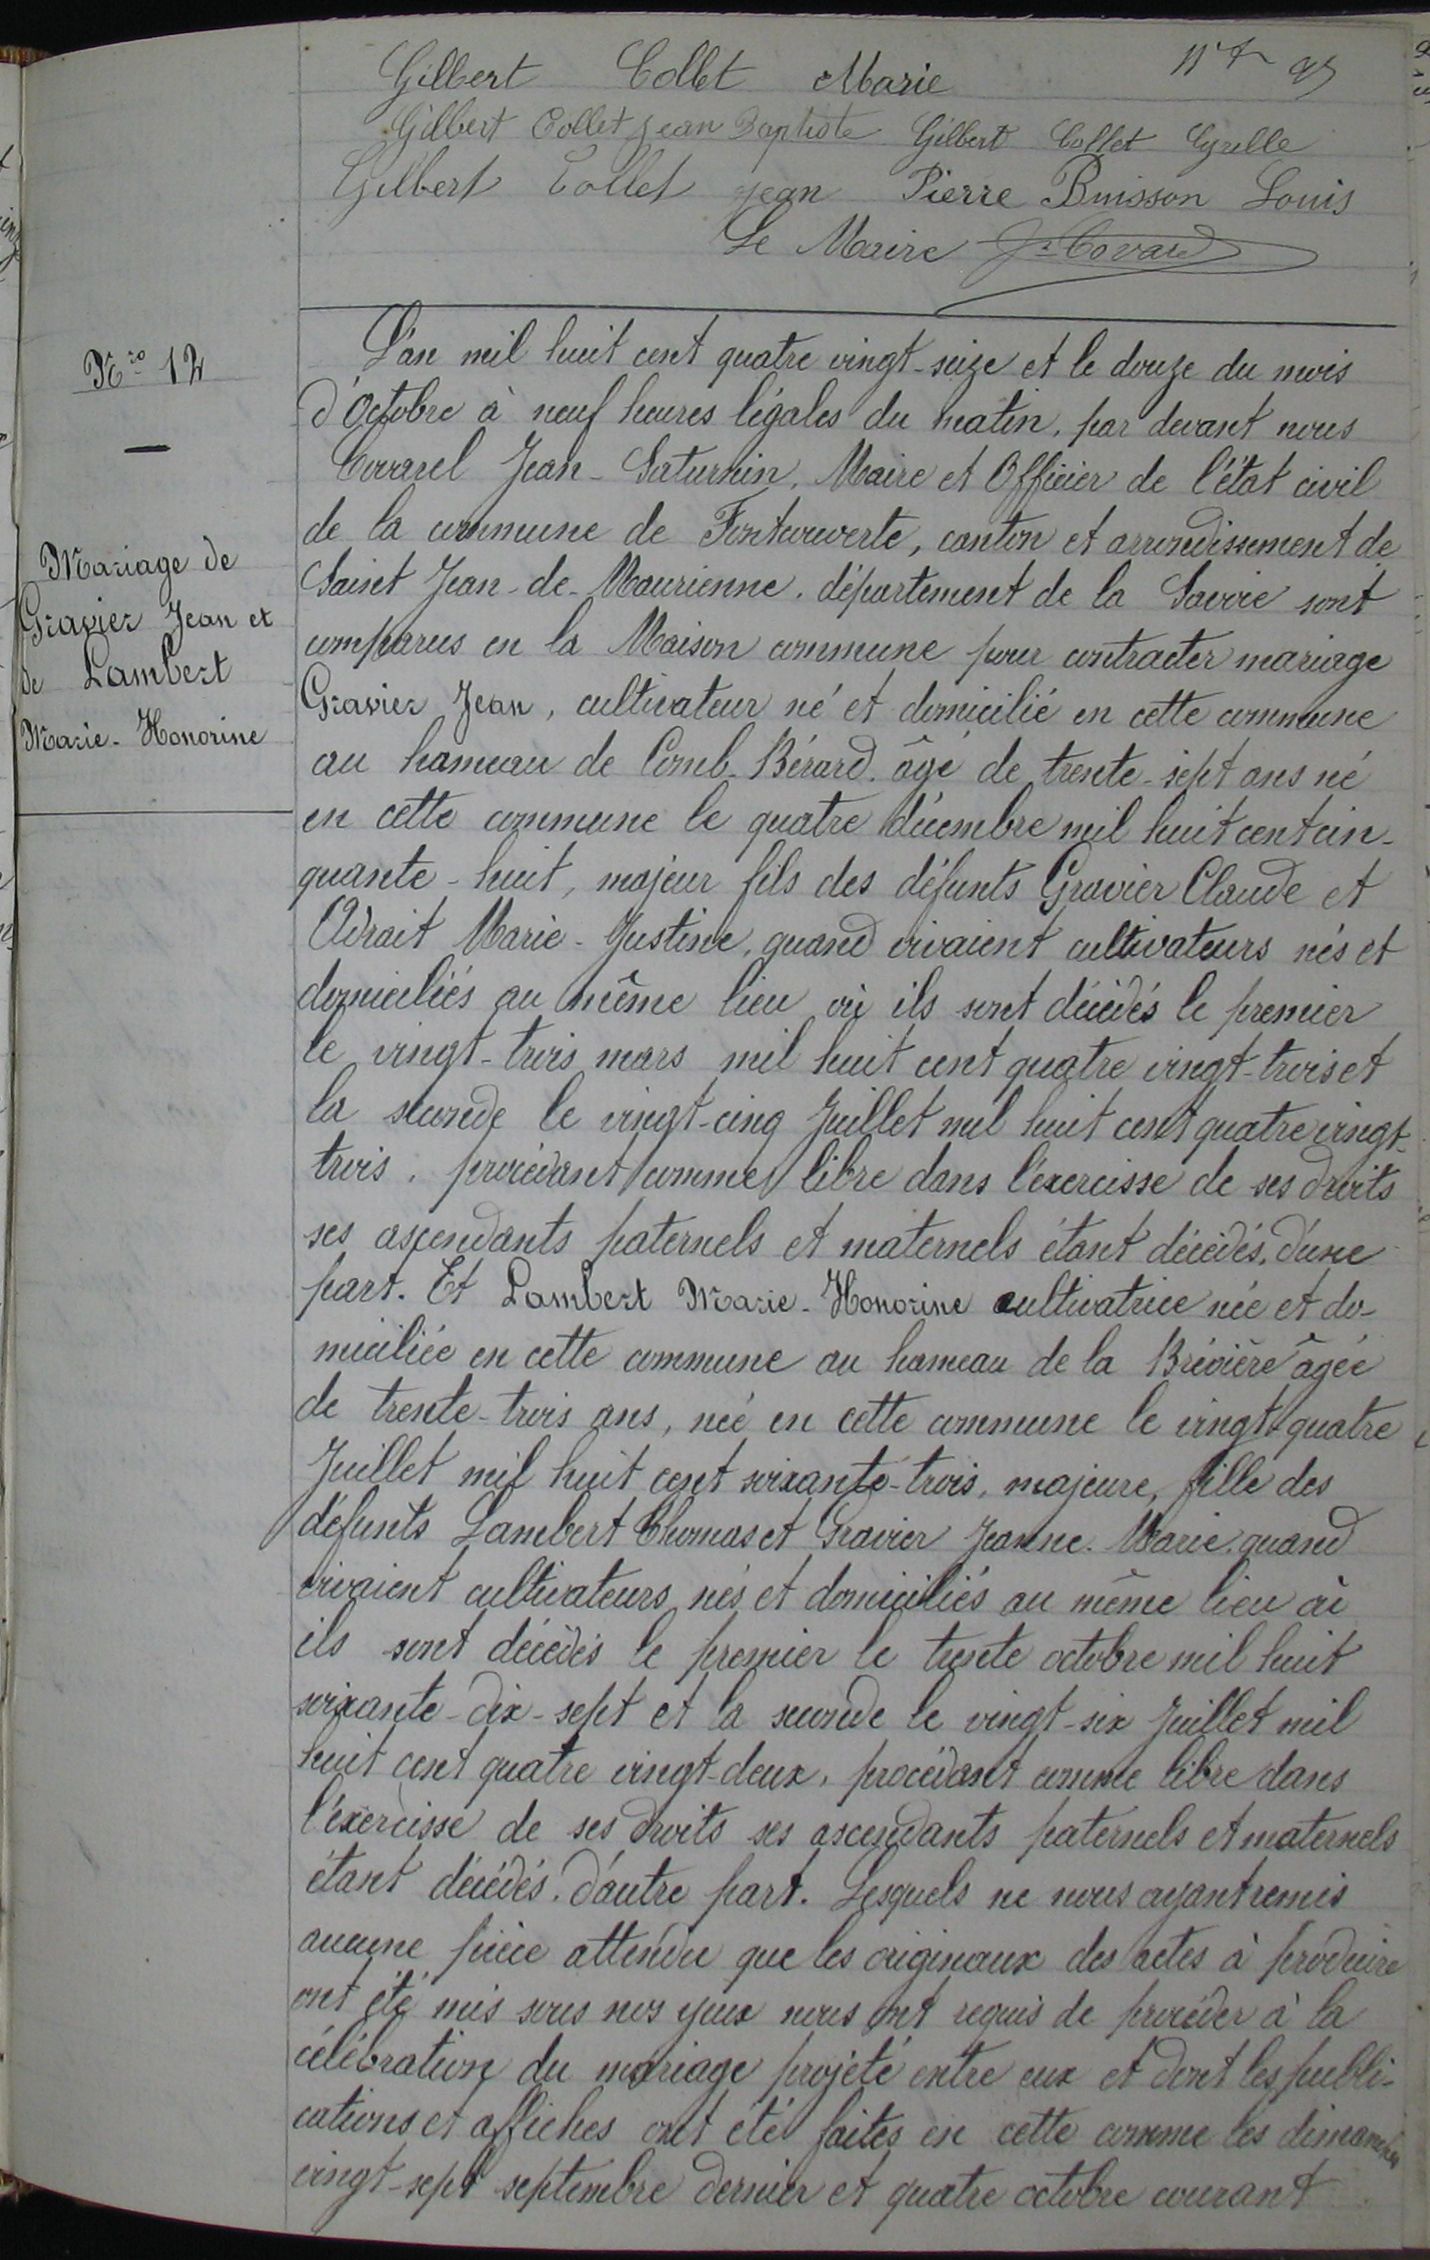 Gilbert Collet Marie
Gilbert Collet Jean Baptiste Gilbert Collet Cyrille
Gilbert Collet Jean Pierre Buisson Louis
Le Maire J. Covarel
Nro 12
Mariage de
Gravier Jean et
de Lambert
Marie-Honorine
L'an mil huit cent quatre vingt-seize et le douze du mois
d'Octobre à neuf heures légales du matin, par devant nous
Covarel Jean-Saturnin, Maire et Officier de l'état civil
de la commune de Fontcouverte, canton et arrondissement de
Saint Jean-de-Maurienne, département de la Savoie sont
comparus en la Maison commune pour contracter mariage
Gravier Jean, cultivateur né et domicilié en cette commune
au hameau de Comb-Bérard, âgé de trente-sept ans né
en cette commune le quatre décembre mil huit cent cin-
quante-huit, majeur fils des défunts Gravier Claude et
Adrait Marie-Justine, quand vivaient cultivateurs nés et
domiciliés au même lieu où ils sont décédés le premier
le vingt-trois mars mil huit cent quatre vingt-trois et
la seconde le vingt-cinq Juillet mil huit cent quatre vingt-
trois, procédant comme libre dans l'exercisse de ses droits
ses ascendants paternels et maternels étant décédés, d'une
part. Et Lambert Marie-Honorine cultivatrice née et do-
miciliée en cette commune au hameau de la Brévière âgée
de trente-trois ans, née en cette commune le vingt-quatre
Juillet mil huit cent soixante-trois, majeure, fille des
défunts Lambert Thomas et Gravier Jeanne-Marie, quand
vivaient cultivateurs nés et domiciliés au même lieu où
ils sont décédés le premier le trente octobre mil huit
soixante-dix-sept et la seconde le vingt-six Juillet mil
huit cent quatre vingt-deux, procédant comme libre dans
l'exercisse de ses droits ses ascendants paternels et maternels
étant décédés, d'autre part. Lesquels ne nous ayant remis
aucune pièce attendu que les originaux des actes à produire
ont été mis sous nos yeux nous ont requis de procéder à la
célébration du mariage projeté entre eux et dont les publi-
cations et affiches ont été faites en cette comme les dimanches
vingt-sept septembre dernier et quatre octobre courant